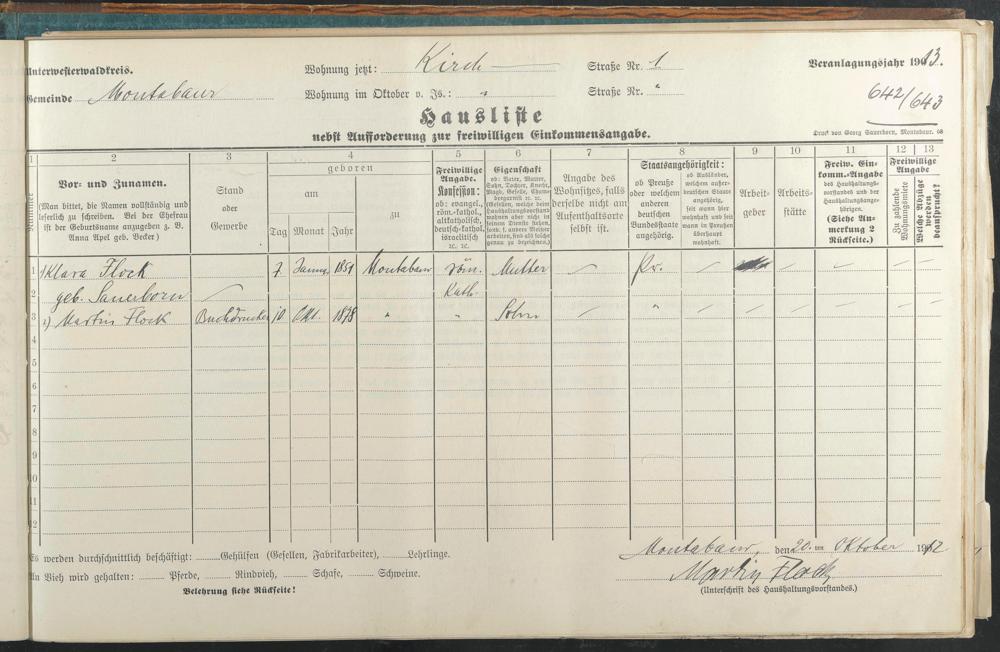 Unterwesterwaldkreis. Wohnung jetzt: Kirch— Straße Nr. 1. Veranlagungsjahr 1913.
Gemeinde Montabaur Wohnung im Oktober v. Js.: " Straße Nr. " 642/643
Hausliste
nebst Aufforderung zur freiwilligen Einkommensangabe.
Druck von Georg Sauerborn, Montabaur. 08
1 2 3 4 5 6 7 8 9 10 11 12 13
Nummer
Vor- und Zunamen.
(Man bittet, die Namen vollständig und
leserlich zu schreiben. Bei der Ehefrau
ist der Geburtsname anzugeben z. B.
Anna Apel geb. Becker)
Stand
oder
Gewerbe
geboren
am
Tag Monat Jahr
zu
Freiwillige
Angabe.
Konfession:
ob: evangel.,
röm.-kathol.,
altkatholisch,
deutsch-kathol.
israelitisch
ec. ec.
Eigenschaft
ob: Vater, Mutter,
Sohn, Tochter, Knecht,
Magd, Geselle,
Angabe des
Wohnsitzes, falls
derselbe nicht am
Aufenthaltsorte
selbst ist.
Staatsangehörigkeit:
ob Preuße
oder welchem
anderen
deutschen
Bundesstaate
angehörig.
ob Ausländer,
welchem außer-
deutschen Staate
angehörig,
seit wann hier
wohnhaft und seit
wann in Preußen
überhaupt
wohnhaft.
Arbeit-
geber
Arbeits-
stätte
Freiw. Ein-
komm.-Angabe
des Haushaltungs-
vorstandes und der
Haushaltungsange-
hörigen.
(Siehe An-
merkung 2
Rückseite.)
Freiwillige
Angabe
Zu zahlende
Wohnungsmiete
Welche Abzüge
werden
beansprucht?
1 1) Klara Flock 7. Januar 1851 Montabaur röm. Mutter — Pr. — — — — —
2 geb. Sauerborn — Kath.
3 2) Martin Flock Buchdrucker 10 Okt. 1878 " " Sohn — " — — — — — —
4
5
6
7
8
9
10
11
12
Es werden durchschnittlich beschäftigt: Gehülfen (Gesellen, Fabrikarbeiter), Lehrlinge.
An Vieh wird gehalten: Pferde, Rindvieh, Schafe, Schweine.
Belehrung siehe Rückseite!
Montabaur, den 20. ten Oktober 1912
Martin Flock
(Unterschrift des Haushaltungsvorstandes.)